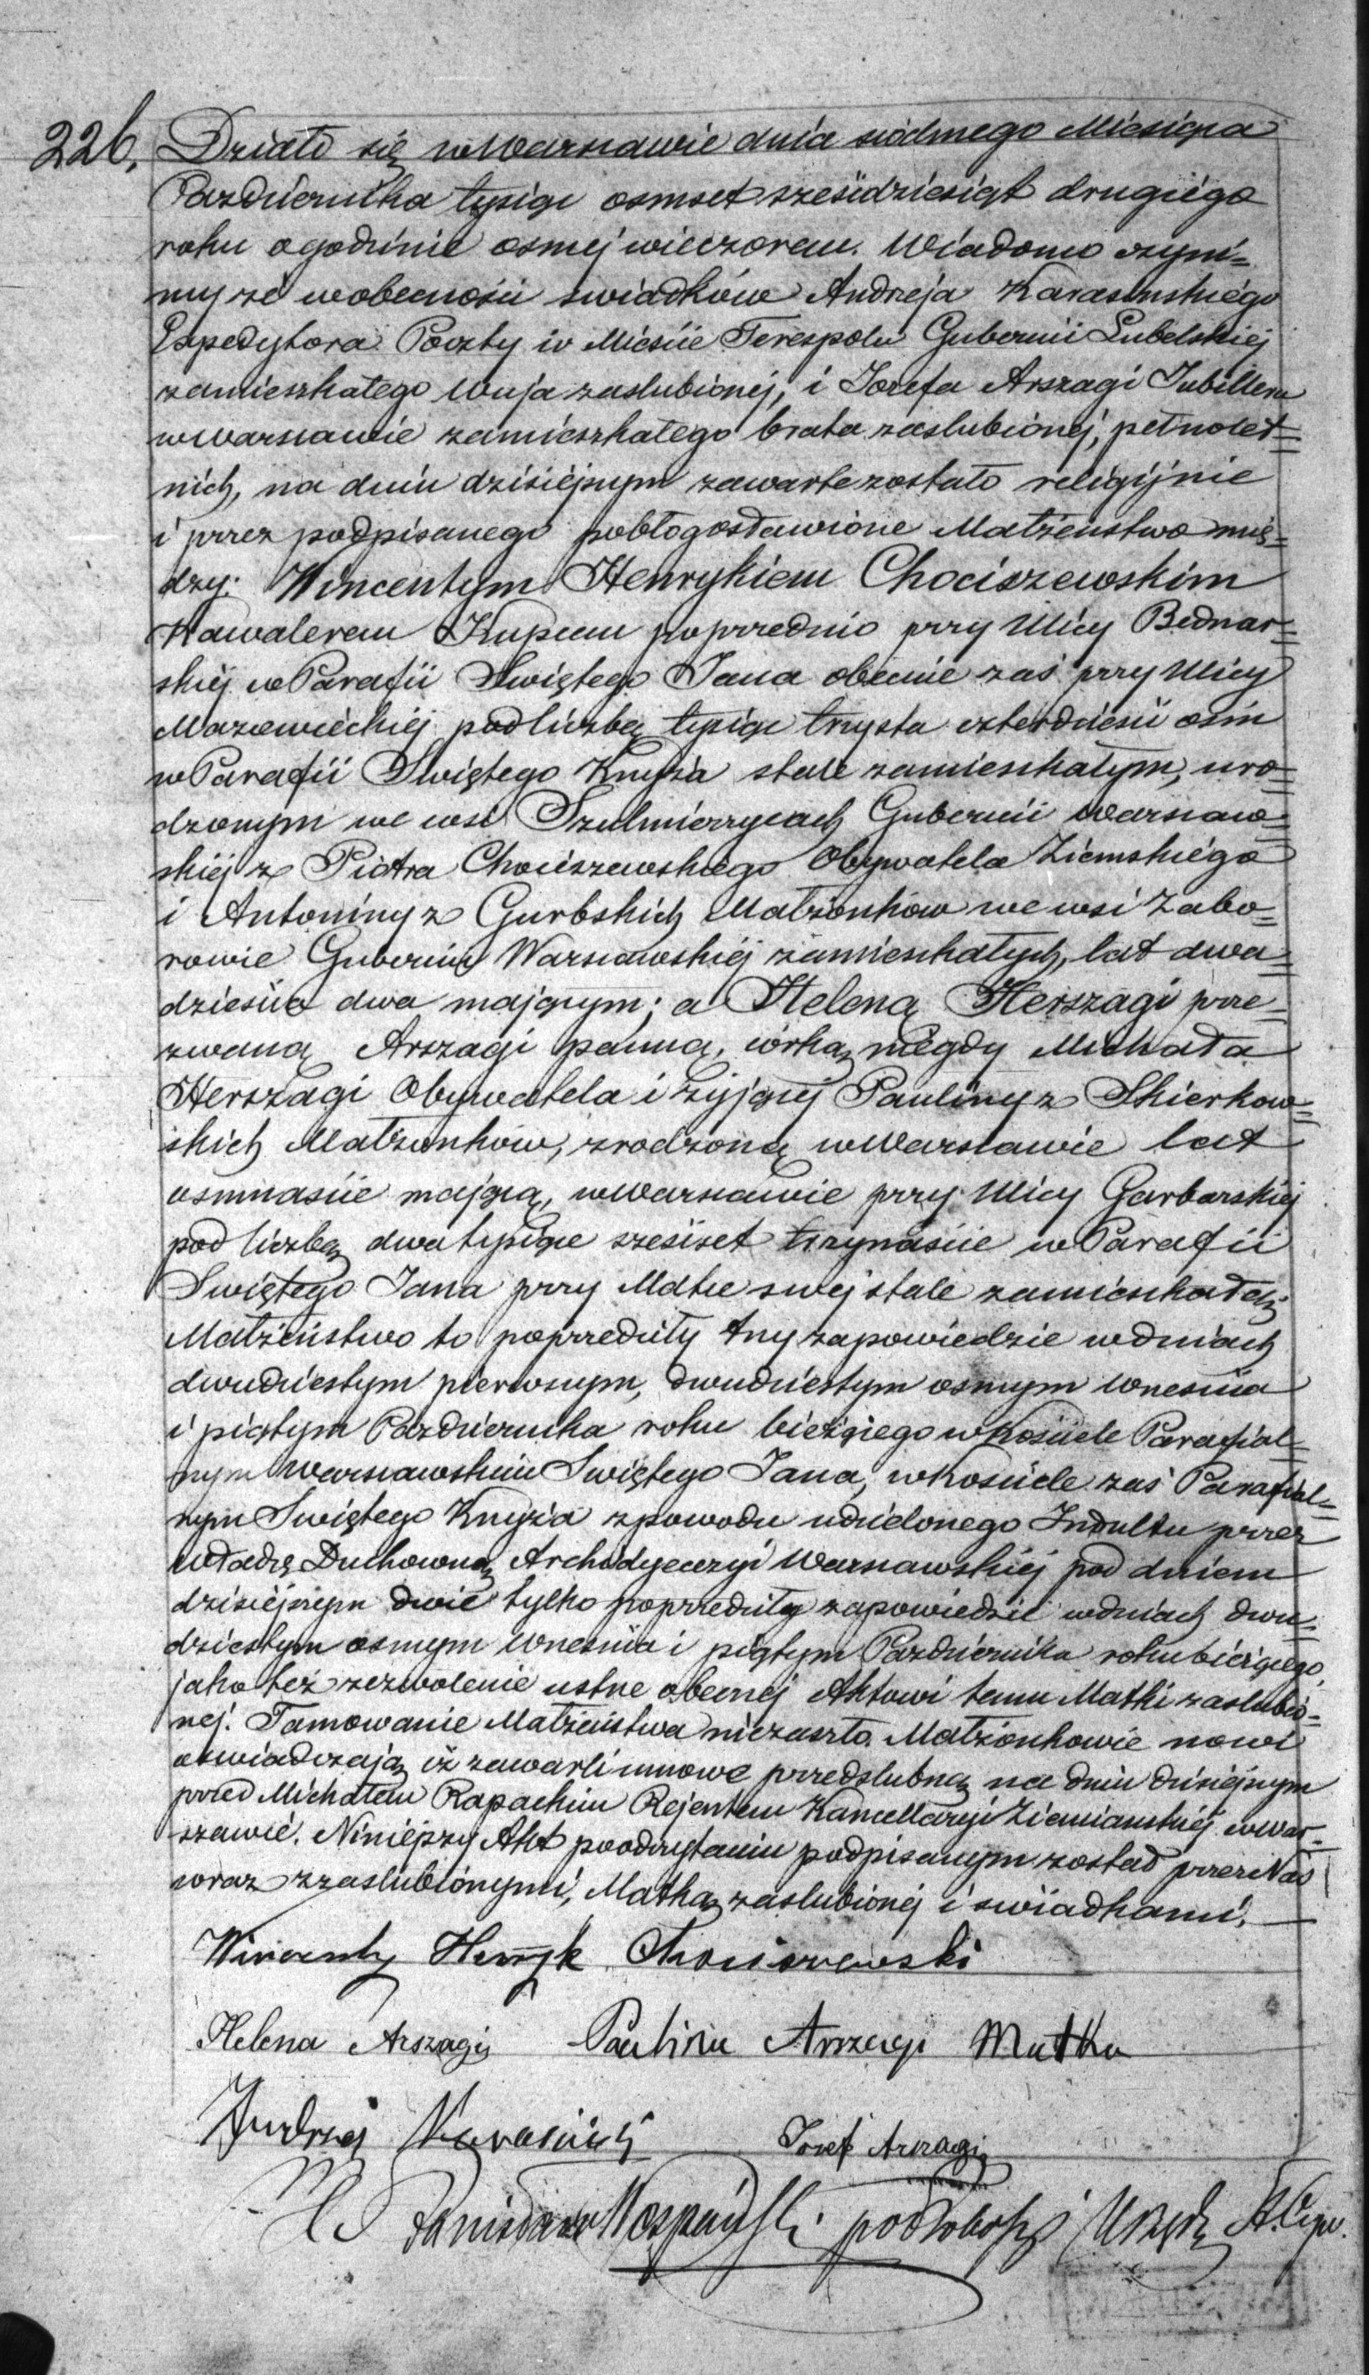 226. Działo się w Warszawie dnia siódmego Miesiąca
Pazdziernika tysiąc osmset sześćdziesiąt drugiego
roku o godzinie osmej wieczorem. Wiadomo czyni=
my że w obecności swiadków Andrzeja Karasinskiego
Expedytora Poczty w Mieście Terespolu Gubernii Lubelskiej
zamieszkałego Wuja zaslubionej, i Jozefa Arszagi Jubillera
w Warszawie zamieszkałego brata zaslubionej, pełnolet=
nich, na dniu dzisiejszym zawarte zostało religijnie
i przez podpisanego pobłogosławione Małżeństwo mię=
dzy: Wincentym Henrykiem Chociszewskim
Kawalerem Kupcem poprzednio przy Ulicy Bednar=
skiej w Parafii Swiętego Jana obecnie zaś przy Ulicy
Mazowieckiej pod liczbą tysiąc trzysta czterdzieści ośm
w Parafii Swiętego Krzyża stale zamieszkałym, uro=
dzonym we wsi Szulmierzycach Gubernii Warszaw=
skiej z Piotra Chociszewskiego Obywatela Ziemskiego
i Antoniny z Gurbskich Małżonków we wsi Zabo=
rowie Gubernii Warszawskiej zamieszkałych, lat dwa=
dzieścia dwa mającym; a Heleną Herszagi prze=
zwaną Arszagi panną, córką niegdy Michała
Herszagi Obywatela i żyjącej Pauliny z Skierkow=
skich Małżonków, zrodzoną w Warszawie lat
osmnaście mającą, w Warszawie przy Ulicy Garbarskiej
pod liczbą dwa tysiące sześćset trzynaście w Parafii
Swiętego Jana przy Matce swej stale zamieszkałą.
Małżeństwo to poprzedziły trzy zapowiedzie w dniach
dwudziestym pierwszym, dwudziestym osmym Wrzesnia
i piątym Pazdziernika roku bieżącego w Kościele Parafial=
nym Warszawskim Swiętego Jana, w Kościele zaś Parafial=
nym Swiętego Krzyża z powodu udzielonego Indultu przez
Władzę Duchowną Archidyecezyi Warszawskiej pod dniem
dzisiejszym dwie tylko poprzedziły zapowiedzie w dniach dwu=
dziestym osmym Wrzesnia i piątym Pazdziernika roku bieżącego,
jako też zezwolenie ustne obecnej Aktowi temu Matki zaslubio=
nej. Tamowanie Małżeństwa niezaszło. Małżonkowie nowi
oswiadczają iż zawarli umowę przedslubną na dniu dzisiejszym
przed Michałem Rapackim Rejentem Kancellaryi Ziemianskiej w War=
szawie. Niniejszy Akt po odczytaniu podpisanym został przez Nas
wraz z zaslubionymi, Matką zaslubionej i swiadkami.
Wincenty Henryk Chociszewski
Helena Arszagi Paulina Arszagi Matka
Andrzej Karasiński Jozef Arszagi